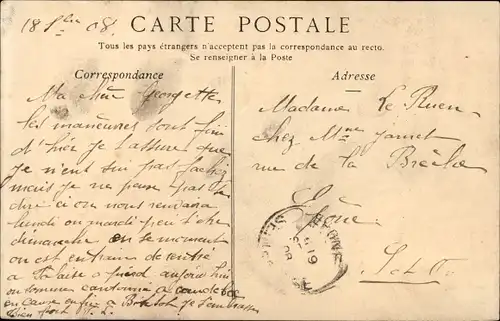 18 7bre 08.
CARTE POSTALE
Tous les pays étrangers n'acceptent pas la correspondance au recto.
Se renseigner à la Poste
Correspondance
Adresse
Ma chère Georgette
les manœuvres sont fini
d'hier je t'assure que
je n'ent sui pas fachez
mais je ne peux pas te
dire ci on nous renverra
lundi ou mardi peut être
dimanche en se moment
on est en train de rentré
a pied aujourd'hui
ou sommes cantonné a
en cause enfin a je t'embrasse
bien fort
Madame Le Ruen
chez Mme Jamet
rue de la Brêche
S et O.